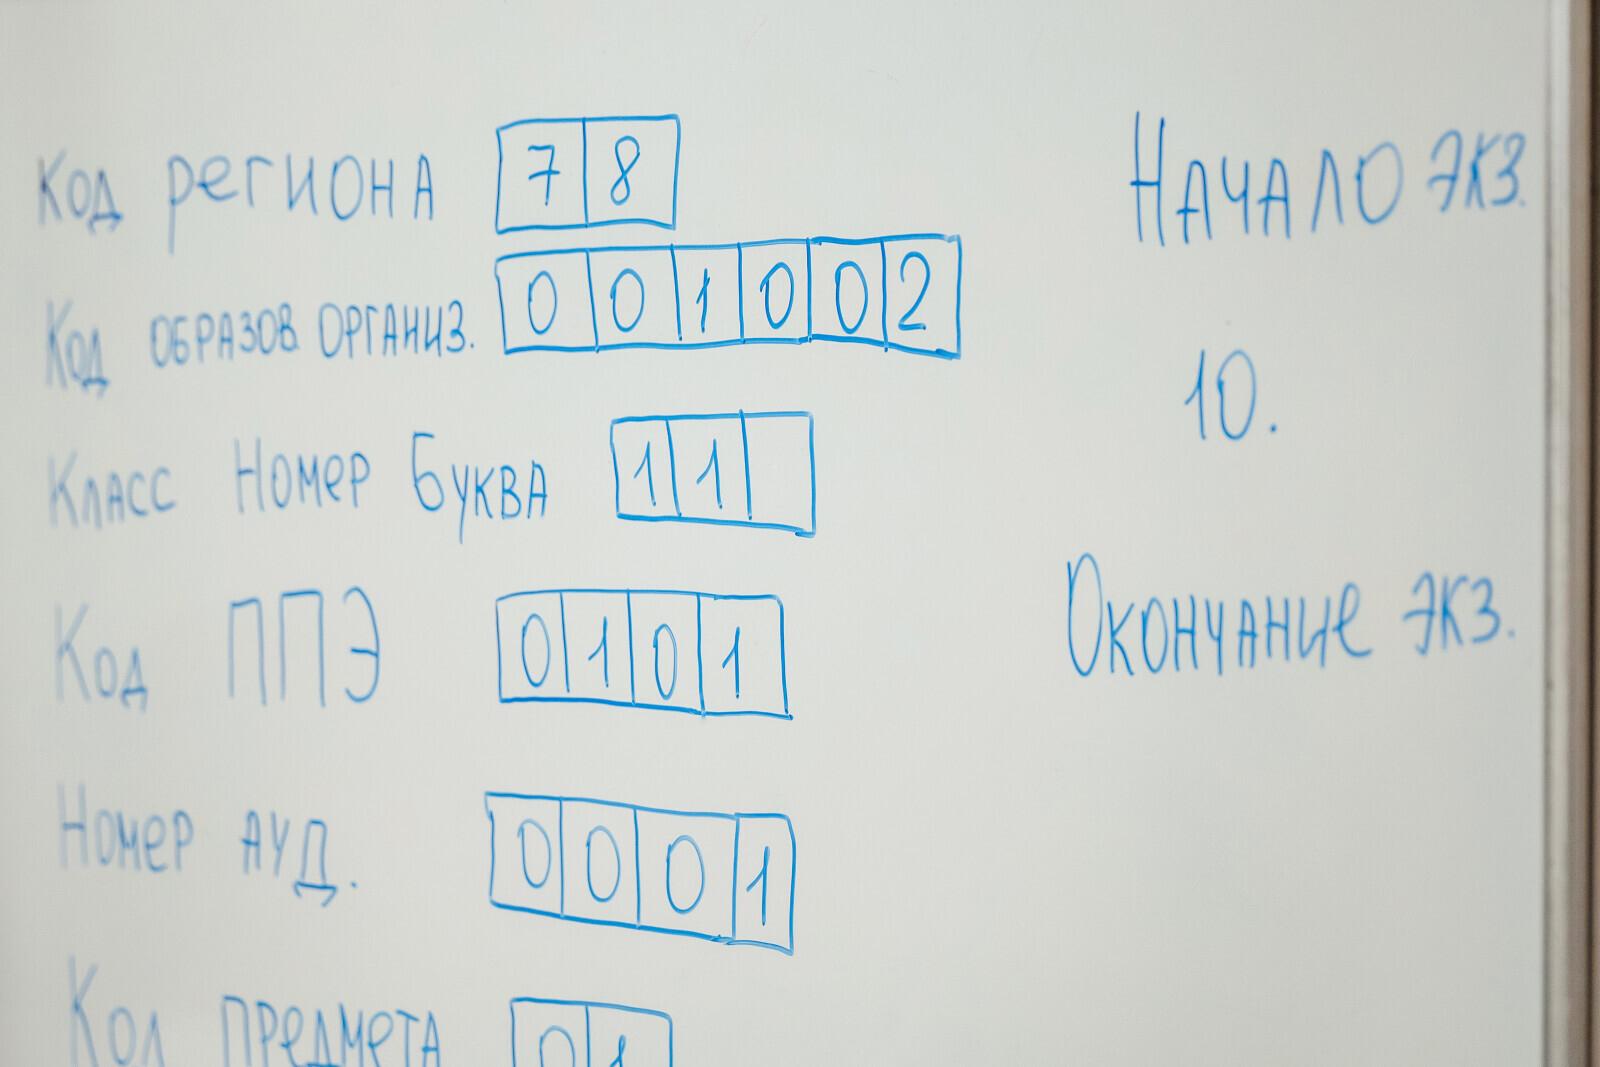 Код региона 78
Код образов организ. 001002
Класс Номер Буква 11
Код ППЭ 0101
Номер ауд. 0001
Код предмета 01
Начало экз.
10.
Окончание экз.